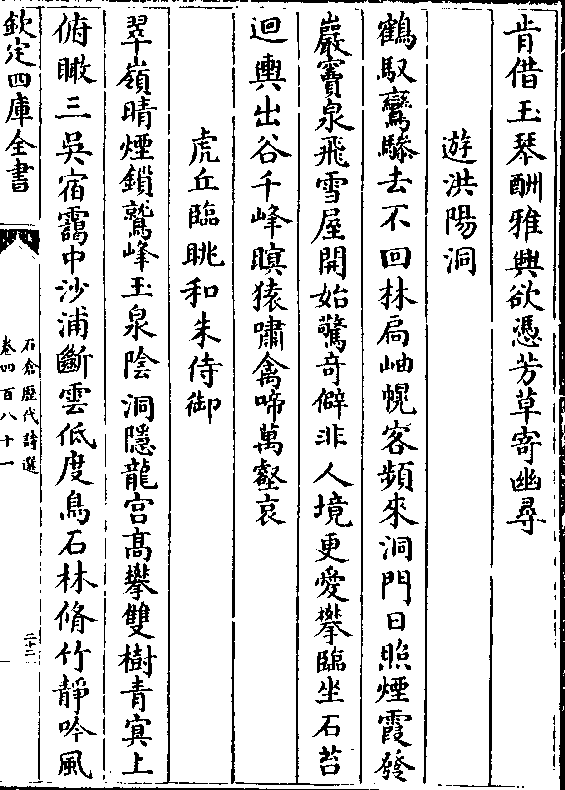 肯借玉琴酬雅興欲憑芳草寄幽尋
遊洪陽洞
鶴馭鸞驂去不回林扃岫幌客頻來洞門日照煙霞發
巖竇泉飛雪屋開始驚奇僻非人境更愛攀臨坐石苔
迴輿出谷千峰暝猿嘯禽啼萬壑哀
虎丘臨眺和朱侍御
翠嶺晴煙鎖鷲峰玉泉陰洞隱龍宮高攀雙樹青冥上
俯瞰三吳宿靄中沙浦斷雲低度鳥石林脩竹靜吟風
欽定四庫全書
石倉歷代詩選
卷四百八十一
二十二